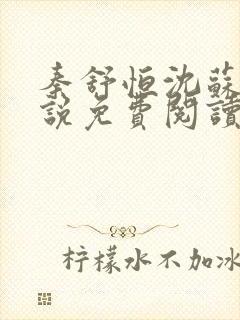 秦舒恒沈蘇
說免費閱讀
柠檬水不加冰